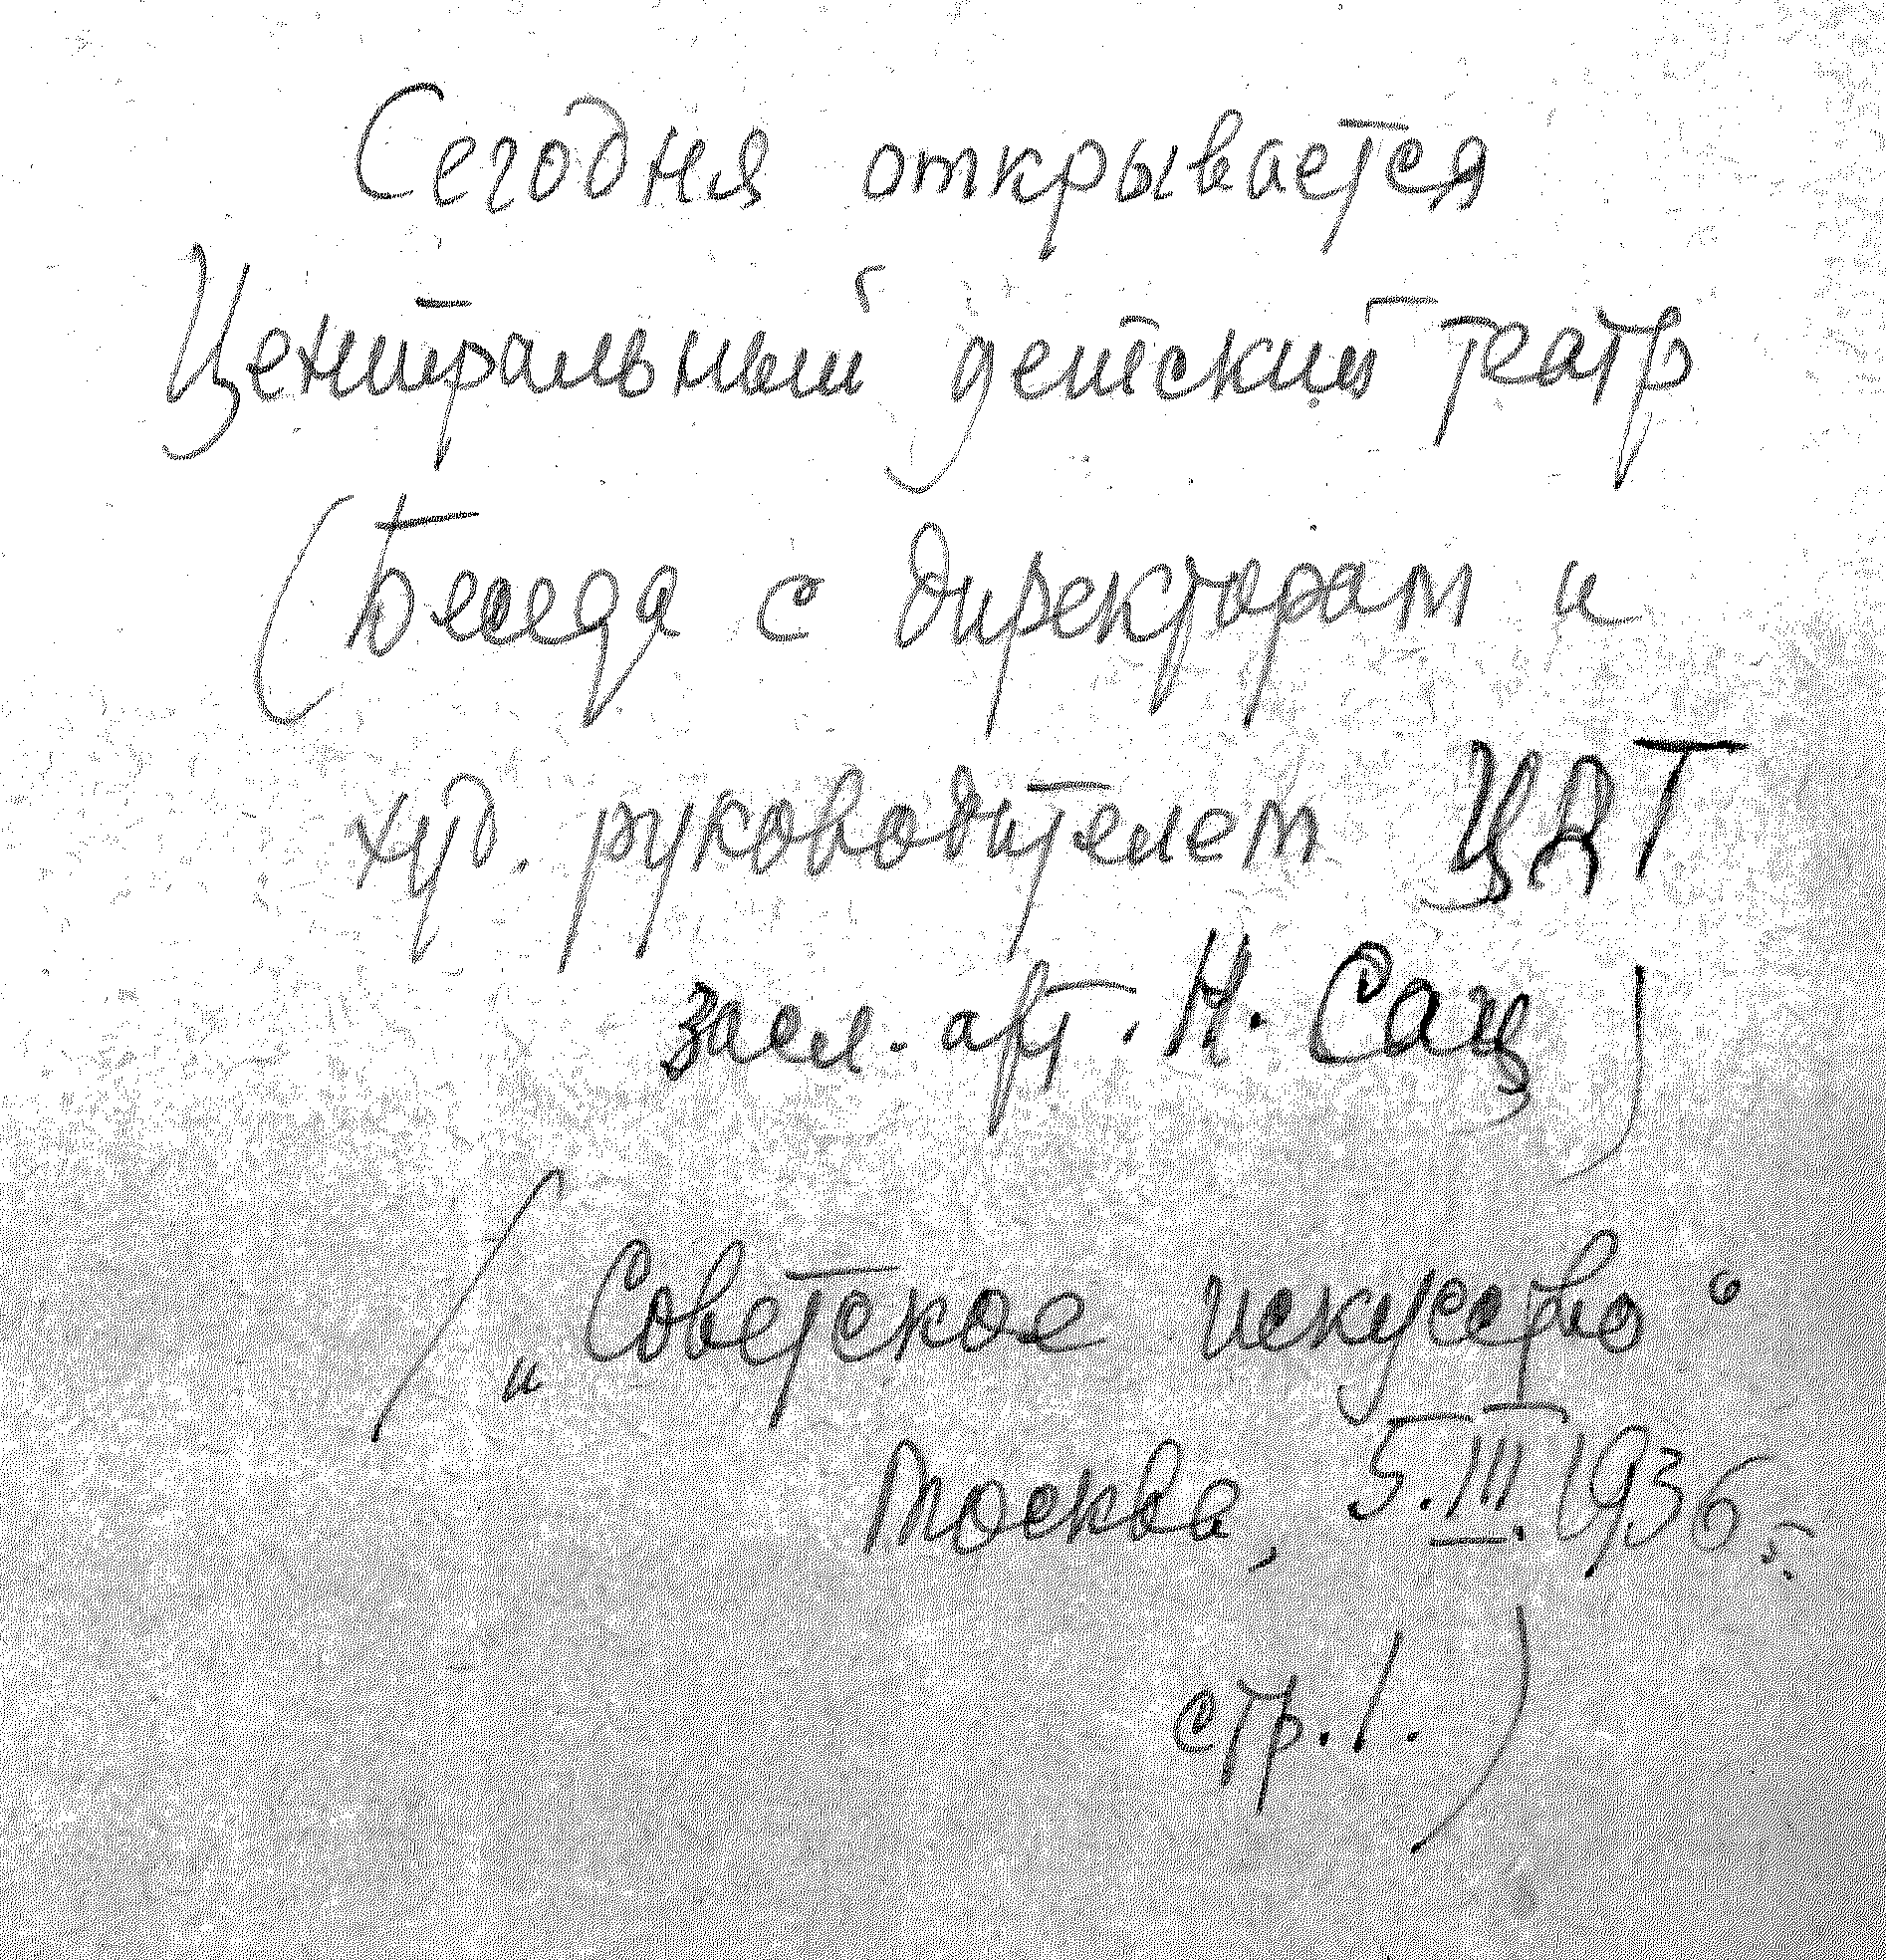 Сегодня открывается
Центральный детский театр
(Беседа с директором и
худ. руководителем ЦДТ
засл. арт. Н. Сац)
("Советское искусство"
Москва, 5.III.1936 г.
стр. 1.)